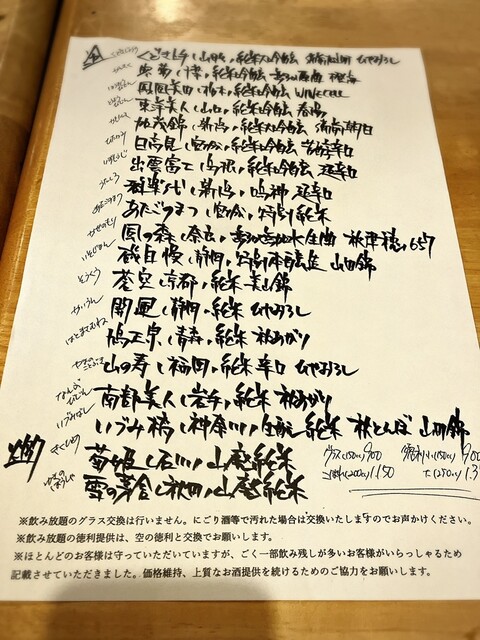 くどき上手(山形)純米大吟醸 ひやおろし
純米吟醸
鳳凰美田(栃木)純米吟醸 WINECELL
東洋美人(山口)純米吟醸
加茂錦(新潟)純米大吟醸
日高見(宮城)純米吟醸 芳醇辛口
出雲富士(島根)純米吟醸 超辛口
(新潟)鳴神 超辛口
あたごのまつ(宮城)特別純米
風の森(奈良)
磯自慢(静岡)特別本醸造 山田錦
蒼空(京都)純米 美山錦
開運(静岡)純米 ひやおろし
はとまさむね
鳩正宗(青森)純米 秋あがり
山の寿(福岡)純米辛口 ひやおろし
なんぶびじん
南部美人(岩手)純米 秋あがり
いづみ橋(神奈川)生酛 純米 秋とんぼ 山田錦
燗
きくひめ
菊姫(石川)山廃純米
雪の茅舎(秋田)山廃純米
グラス(150cc)900 徳利小(150cc)900
※飲み放題のグラス交換は行いません。にごり酒等で汚れた場合は交換いたしますのでお声かけください。
※飲み放題の徳利提供は、空の徳利と交換でお願いします。
※ほとんどのお客様は守っていただいていますが、ごく一部飲み残しが多いお客様がいらっしゃるため
記載させていただきました。価格維持、上質なお酒提供を続けるためのご協力をお願いします。